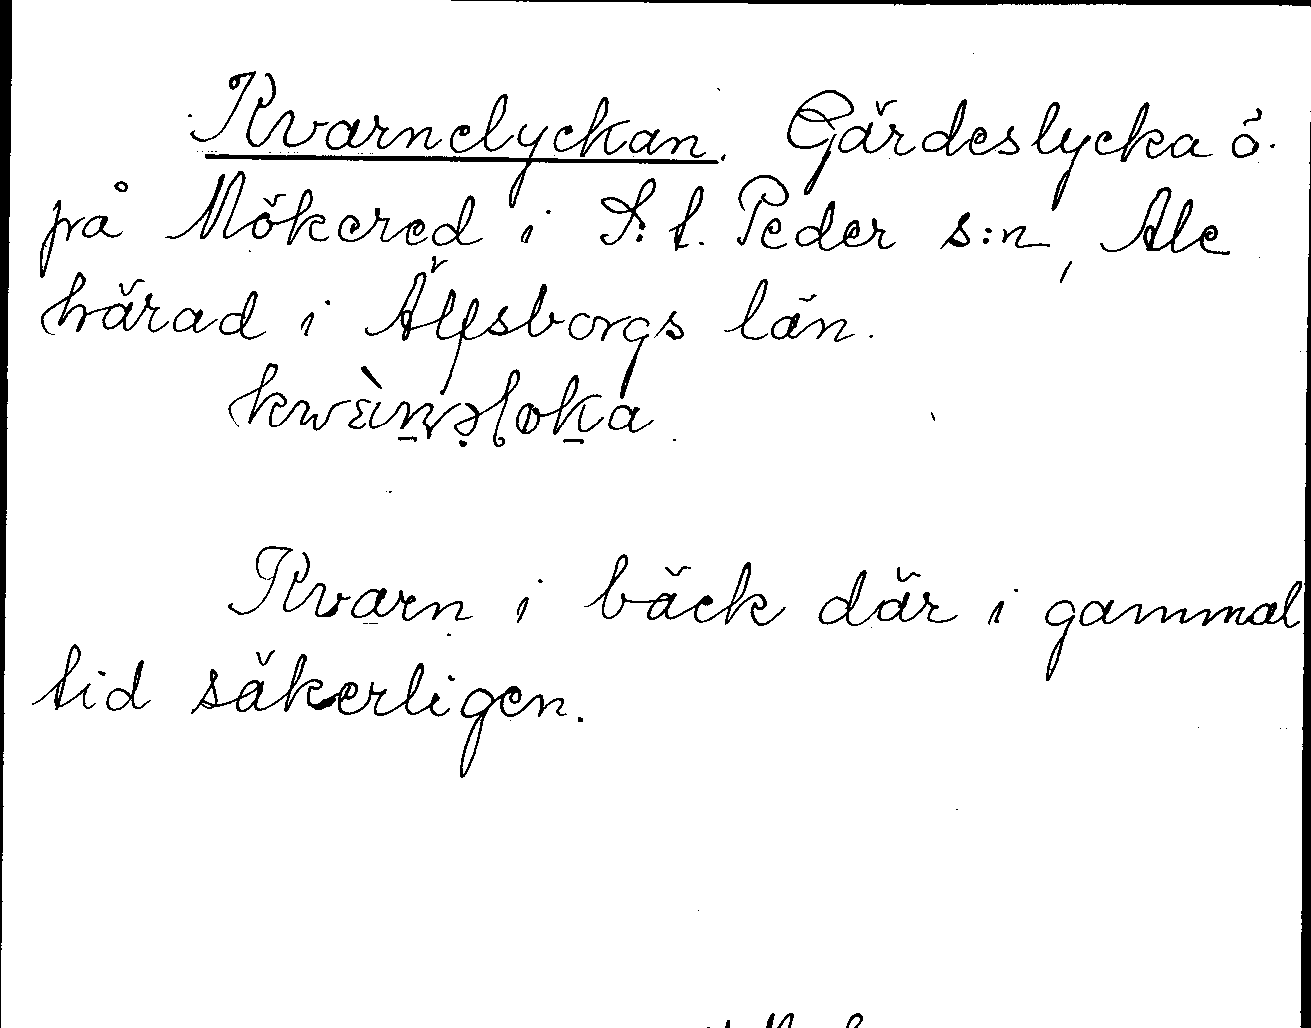 Kvarnelyckan. Gärdeslycka ö.
på Mökered i S:t. Peder s:n, Ale
härad i Älfsborgs län.
Kvarn i bäck där i gammal
tid säkerligen.